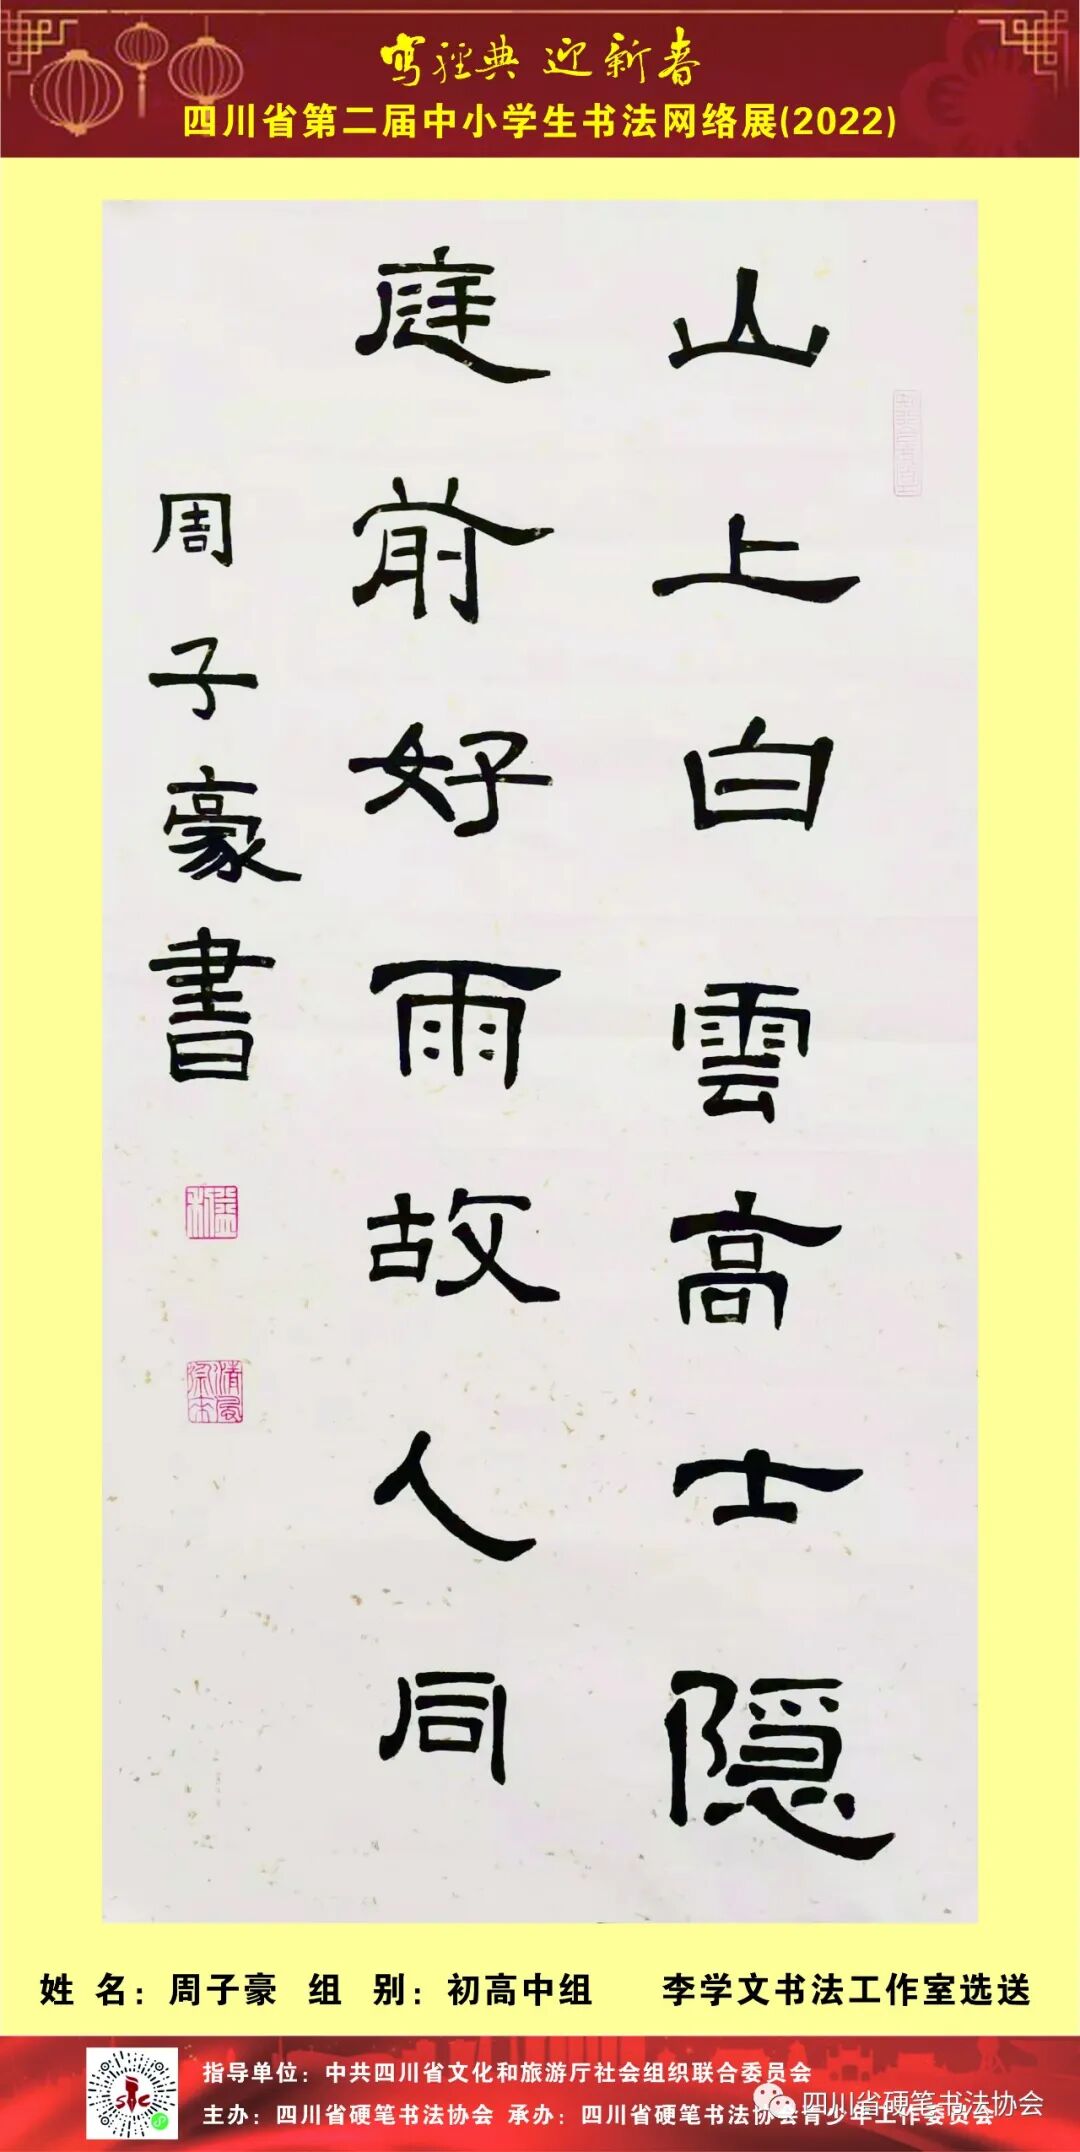 写經典 迎新春
四川省第二届中小学生书法网络展(2022)
山上白雲高士隐
庭前好雨故人同
周子豪書
姓 名：周子豪 组 别：初高中组 李学文书法工作室选送
指导单位：中共四川省文化和旅游厅社会组织联合委员会
主办：四川省硬笔书法协会 承办：四川省硬笔书法协会青少年工作委员会
四川省硬笔书法协会